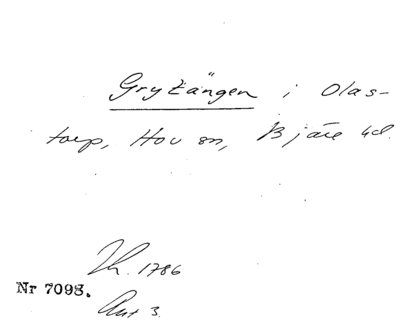 Grytängen i Olas-
torp, Hov sn, Bjäre hd.
Th. 1786
Nr 7098.
Ant 3.